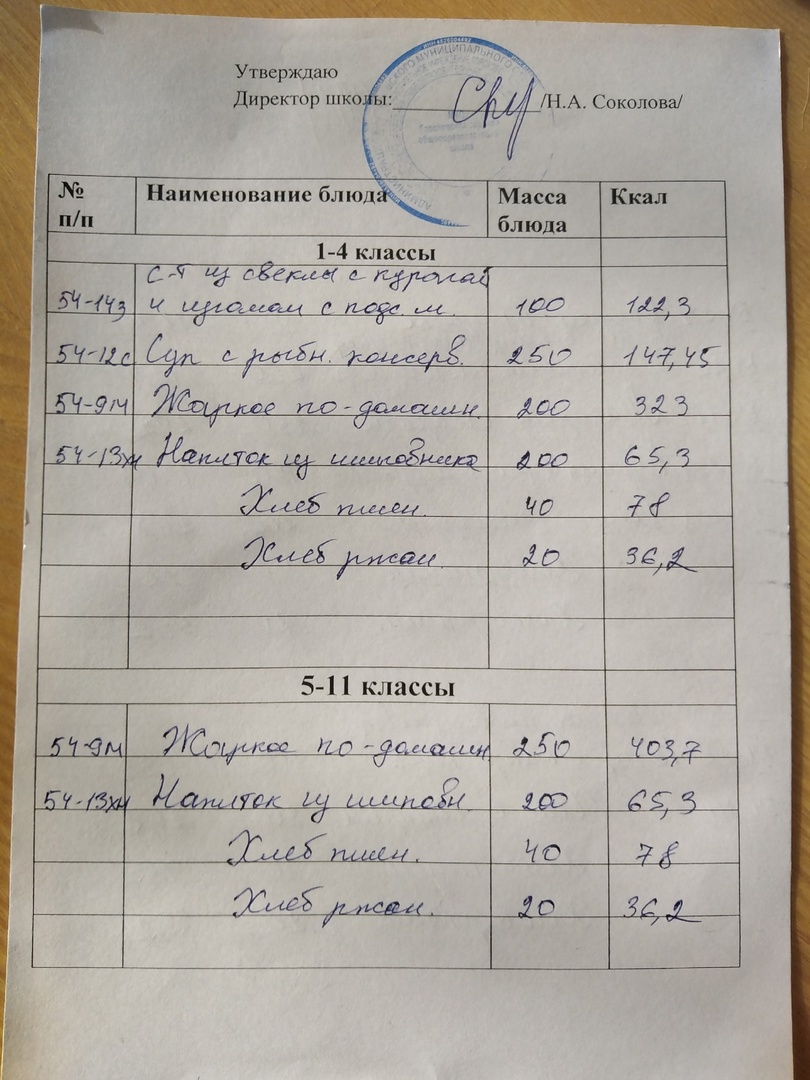 Утверждаю
Директор школы: /Н.А. Соколова/
МУНИЦИПАЛЬНОГО
№ п/п Наименование блюда Масса блюда Ккал
1-4 классы
с-т из свеклы с курагой
54-14з и изюмом с подс. м. 100 122,3
54-12с Суп с рыбн. консерв. 250 147,45
54-9м Жаркое по-домашн. 200 323
54-13хн Напиток из шиповника 200 65,3
Хлеб пшен. 40 78
Хлеб ржан. 20 36,2
5-11 классы
54-9м Жаркое по-домашн 250 403,7
54-13хн Напиток из шиповн. 200 65,3
Хлеб пшен. 40 78
Хлеб ржан. 20 36,2